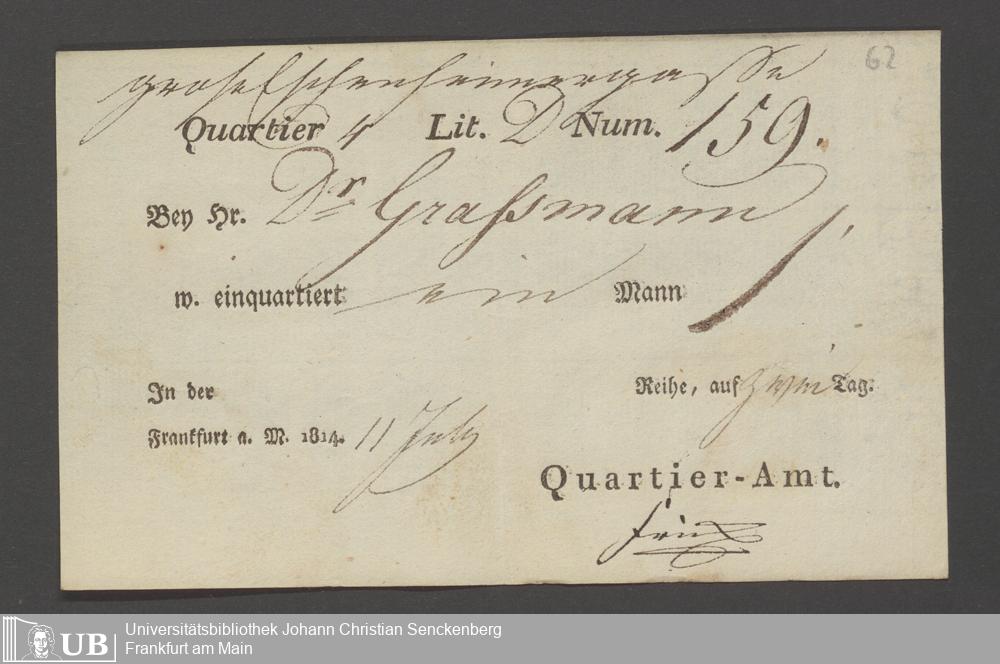 62
grose Eschenheimergasse
Quartier 4 Lit. D Num. 159.
Bey Hr. Dr Grassmann
w. einquartiert ein Mann
In der Reihe, auf zwei Tag.
Frankfurt a. M. 1814. 11 July
Quartier-Amt.
UB
Universitätsbibliothek Johann Christian Senckenberg
Frankfurt am Main